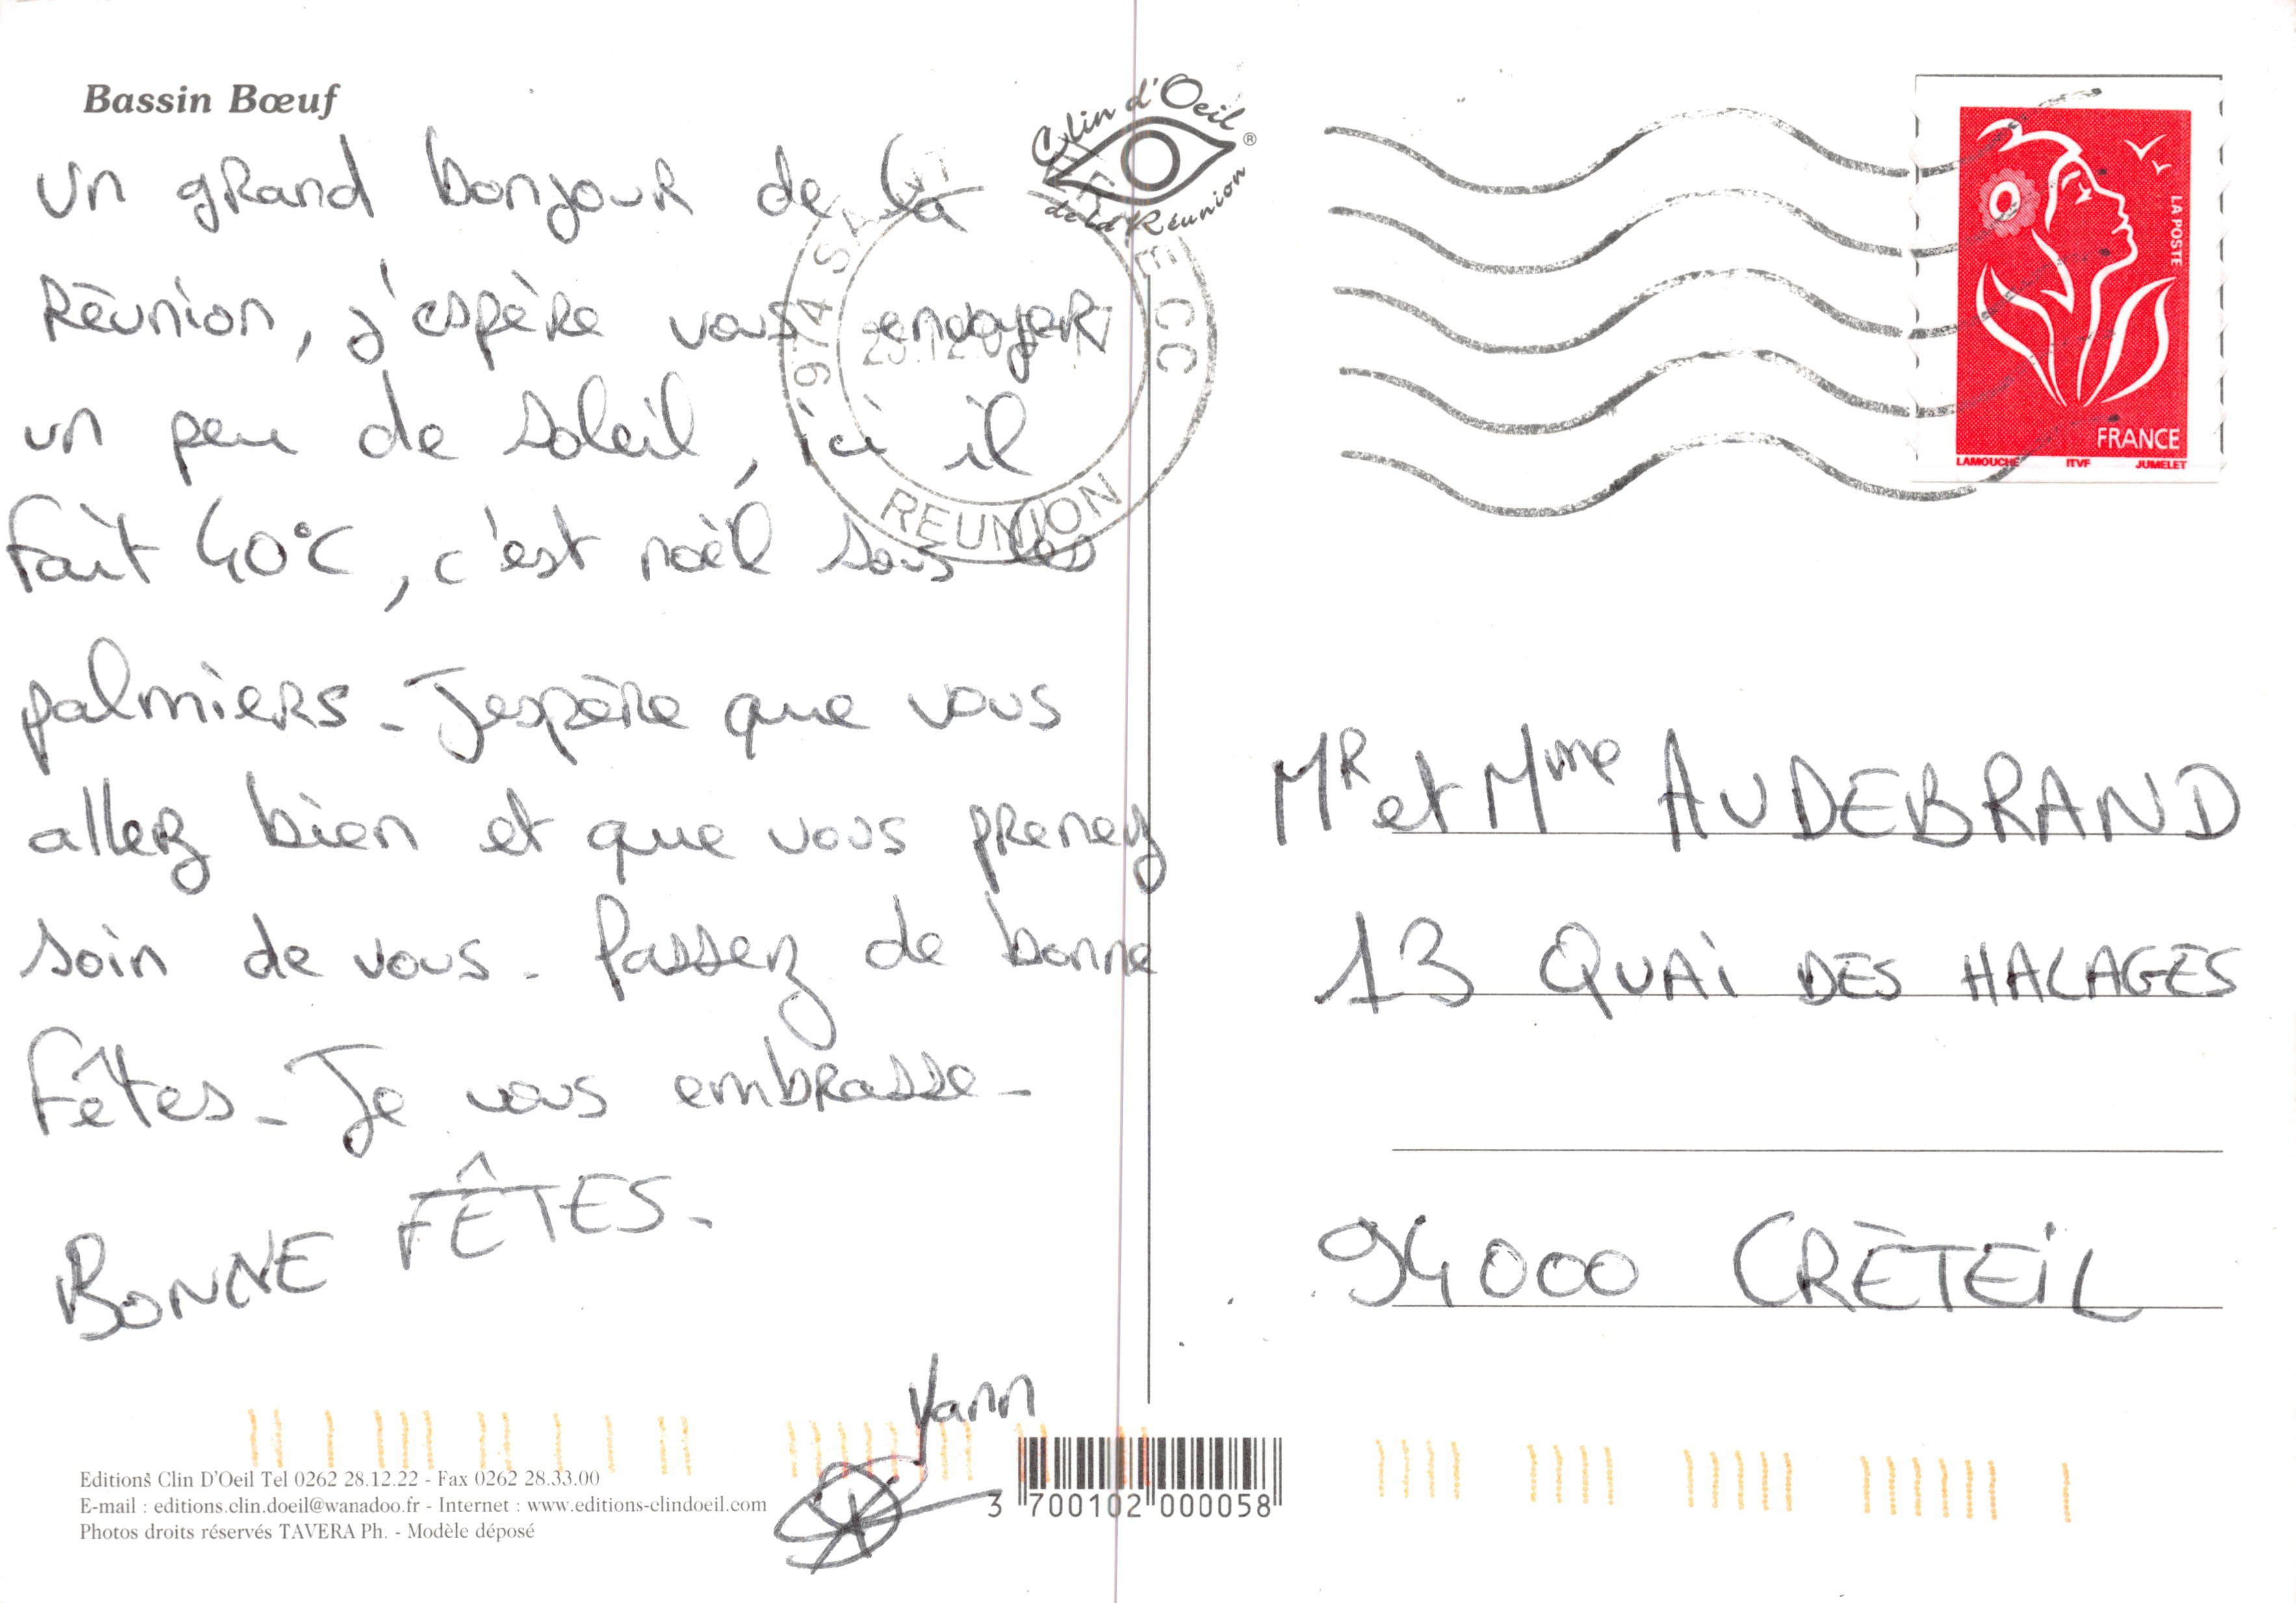 Bassin Bœuf
Un grand bonjour de la
Réunion, j'espère vous envoyer
un peu de soleil, ici il
fait 40°C, c'est noèl sous les
palmiers - J'espère que vous
allez bien et que vous prenez
soin de vous - Passez de bonne
fêtes - Je vous embrasse -
BONNE FÊTES -
Yann
Editions Clin D'Oeil Tel 0262 28.12.22 - Fax 0262 28.33.00
E-mail : editions.clin.doeil@wanadoo.fr - Internet : www.editions-clindoeil.com
Photos droits réservés TAVERA Ph. - Modèle déposé
3 700102 000058
Clin d'Oeil ®
de la Réunion
974
CC
REUNION
LA POSTE
FRANCE
LAMOUCHE ITVF JUMELET
MR et Mme AUDEBRAND
13 QUAI DES HALAGES
94000 CRÈTEIL